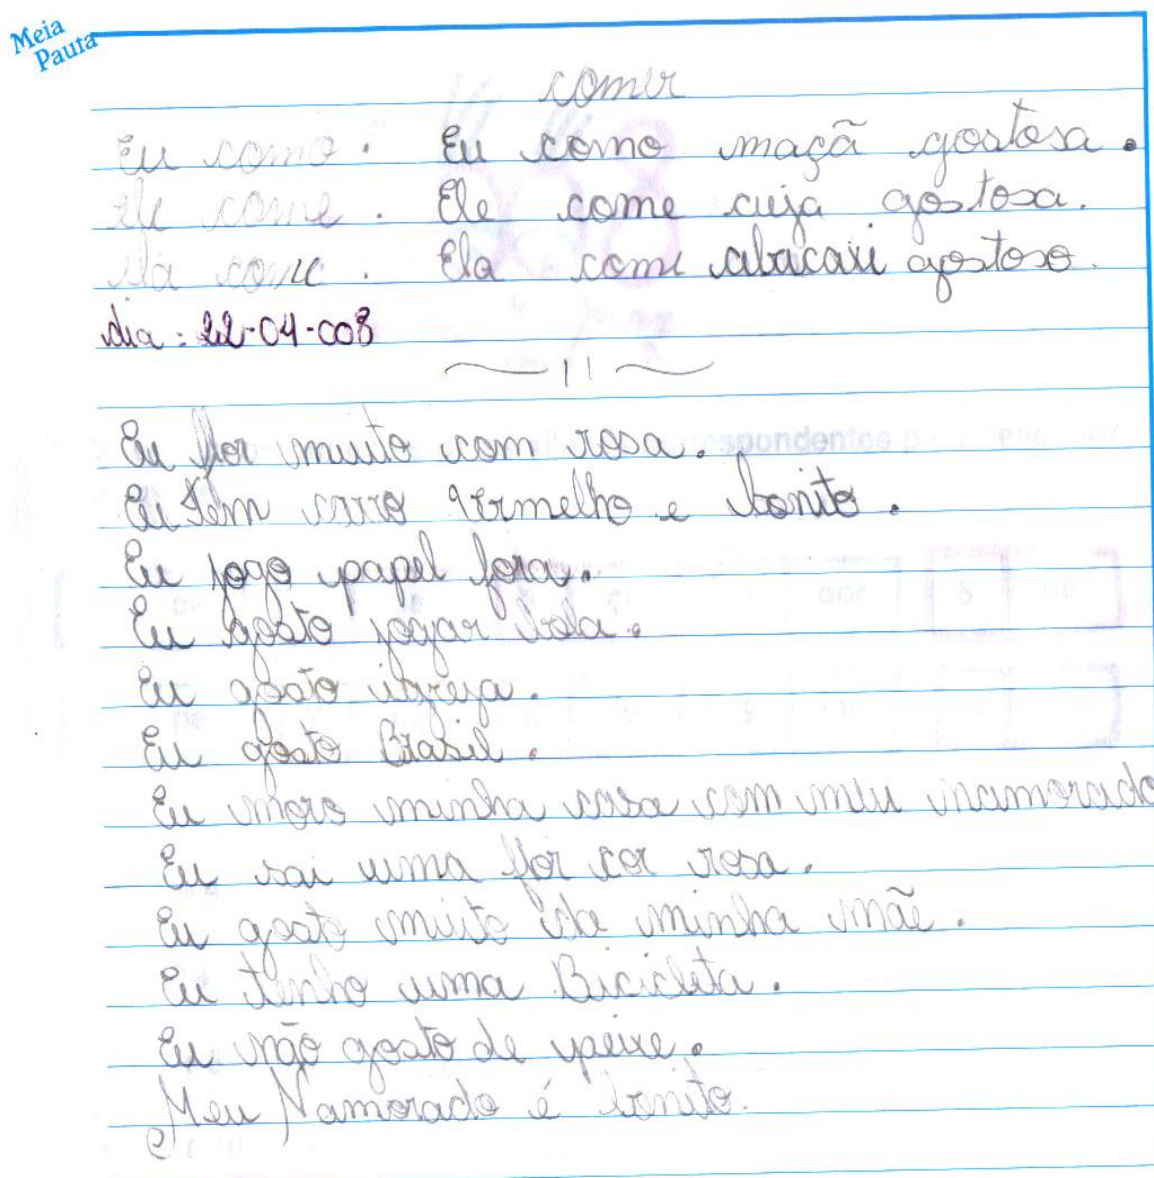 Meia
Pauta
comer
Eu como. Eu como maçã gostosa.
Ele come. Ele come cuja gostosa.
Ela come. Ela come abacaxi gostoso.
dia: 22-04-008
Eu flor muito com rosa.
Eu Tem carro vermelho e bonito.
Eu jogo papel fora.
Eu gosto jogar bola.
Eu gosto igreja.
Eu gosto Brasil.
Eu moro minha casa com meu namorado
Eu sai uma flor cor rosa.
Eu gosto muito da minha mãe.
Eu tenho uma Bicicleta.
Eu não gosto de peixe.
Meu Namorado é bonito.